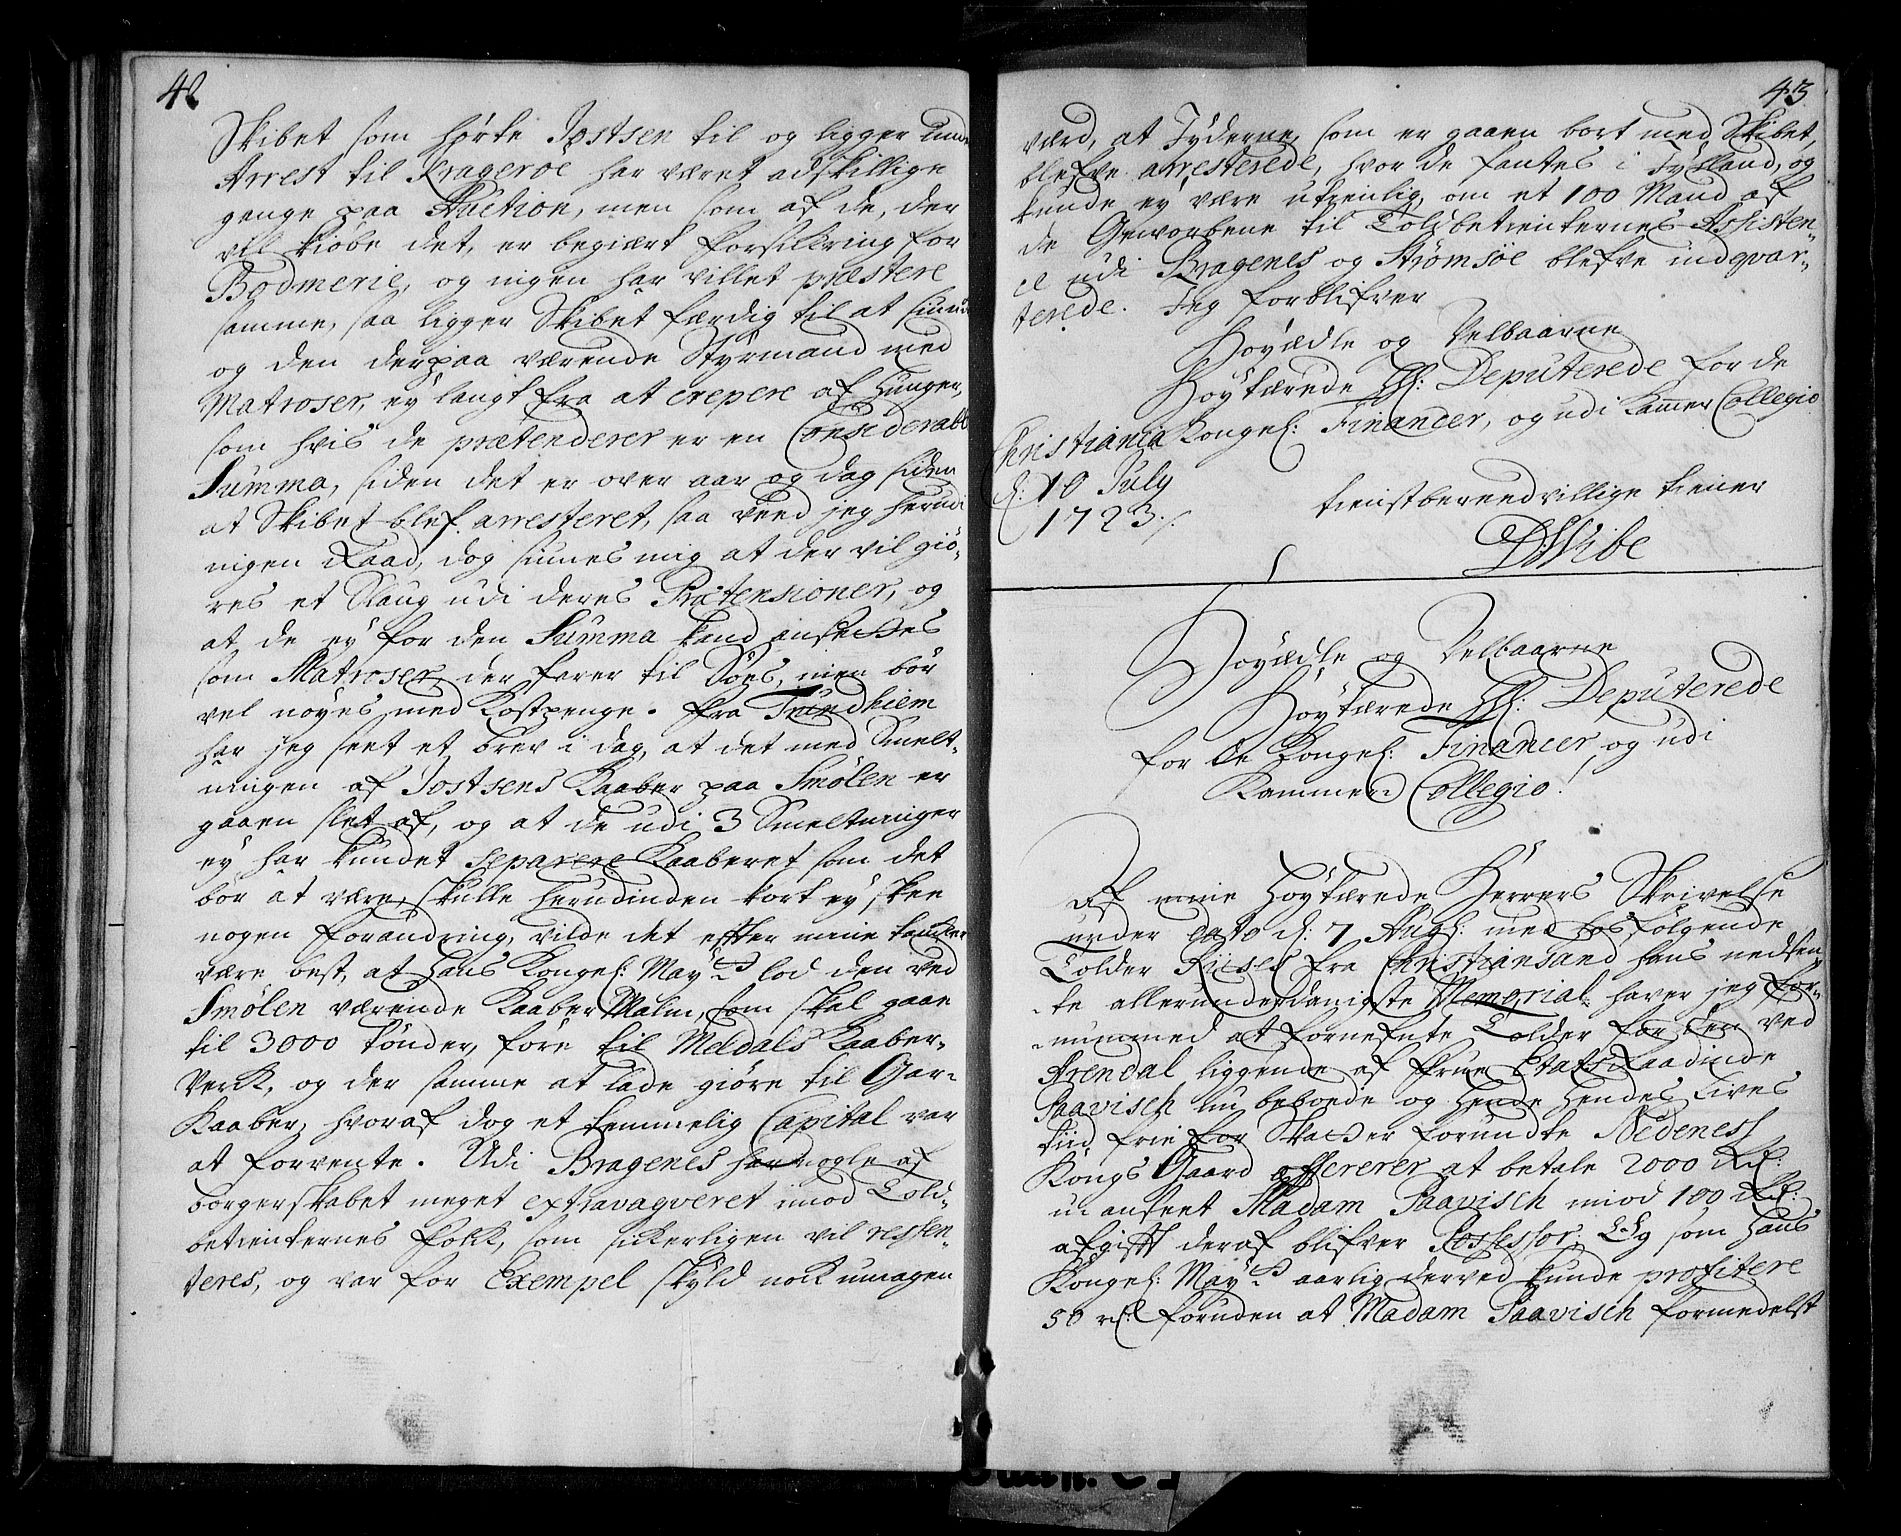 42
Skibet som hörte Jostsen til og ligger und
Arrest til Krageröe har været adskillige
genge paa Auction, men som af de, der
vil kiöbe det, er begiært forsikring for
Bodmerie, og ingen har villet præstere
samme, saa ligger Skibet færdig til at siunke
og den derpaa værende Styrmand med
Matroser, ey langt fra at crepere af Hunger,
som hvis de prætenderer er en Considerabl
Summa, siden det er over aar og dag siden
at Skibet blef arresteret, saa veed jeg herudi
ingen Raad, dog siunes mig at der vil giö-
res et Slaug udi deres Prætensioner, og
at de ey for den Summa kand ansettes
som Matroser, der farer til Söes, men bör
vel nöyes med Kostpenge. fra Trundhiem
har jeg seet et brev i dag, at det med Smelt-
ningen af Jostsens Kaaber paa Smölen er
gaaen slet af, og at de udi 3 Smeltninger
ey har kundet separere Kaaberet som det
bör at være, skulle herudinden kort ey skee
nogen forandring, vilde det efter mine tancker
være best, at Hans Kongel: May:tt lod den ved
Smölen værende Kaaber Malm, som skal gaae
til 3000 tönder, före til Meldals Kaaber-
Verk, og der samme at lade giöre til Gar-
Kaaber, hvoraf dog et temmelig Capital var
at forvente. Udi Bragenes har nogle af
borgerskabet meget extravagveret imod Told-
betienternes folk, som sikerligen vil ressen-
teres, og var for Exempel skyld nock umagen
43
værd, at Tyderne, som er gaaen bort med Skibet,
blefve arresterede, hvor de fantes i Tydland, og
kunde ey være utienlig, om et 100 Mand af
de Gevorbene til Toldbetienternes Assisten-
ce udi Bragenes og Strömsöe blefve indqvar-
terede. Jeg forblifver
Höyædle og Velbaarne
Höytærede HH: Deputerede for de
Kongel: Financer, og udi Kammer Collegio
Christiania
d: 10 July
1723./.
tienstbereedvillige tiener
D: Wibe
Höyædle og Velbaarne
Höytærede HH: Deputerede
for de Kongel: Financer, og udi
Kammer Collegio!
Af mine Höytærede Herrers Skrivelse
under dato d: 7 Aug: med hosfölgende
Tolder Riises fra Christiansand hans nedsen-
te allerunderdanigste Memorial haver jeg for-
nummed at fornefnte Tolder for den ved
Arendal liggende af Frue Etats Raadinde
Paavisch nu beboede og hende hendes Lives
tiid frie for Skatter forundte Nedeness
Kongs Gaard offererer at betale 2000 Rd:
uanseet Madam Paavisch imod 100 Rd:
afgift deraf blifver Possessor; Og som Hans
Kongel: May:tt aarlig derved kunde profitere
50 rd: foruden at Madam Paavisch formedelst